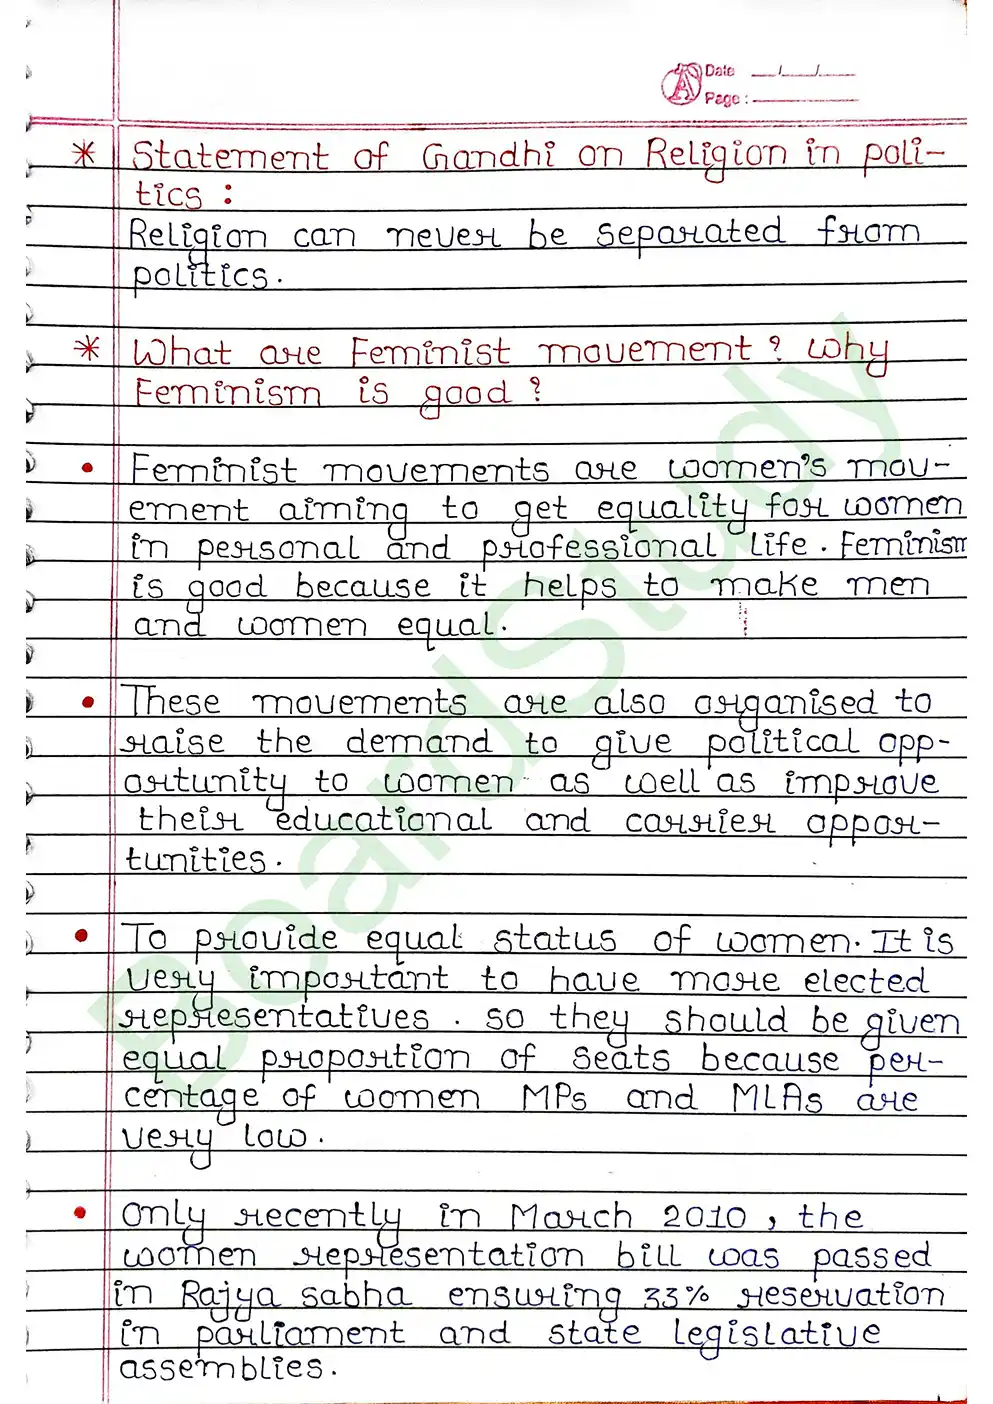 Date __/__/__
Page :
* Statement of Gandhi on Religion in poli-
tics :
Religion can never be separated from
politics.
* What are Feminist movement ? Why
Feminism is good ?
• Feminist movements are women's mov-
ement aiming to get equality for women
in personal and professional life. Feminism
is good because it helps to make men
and women equal.
• These movements are also organised to
raise the demand to give political opp-
ortunity to women as well as improve
their educational and carrier oppor-
tunities.
• To provide equal status of women. It is
very important to have more elected
representatives. so they should be given
equal proportion of seats because per-
centage of women MPs and MLAs are
very low.
• Only recently in March 2010, the
women representation bill was passed
in Rajya sabha ensuring 33% reservation
in parliament and state legislative
assemblies.
BoardStudy